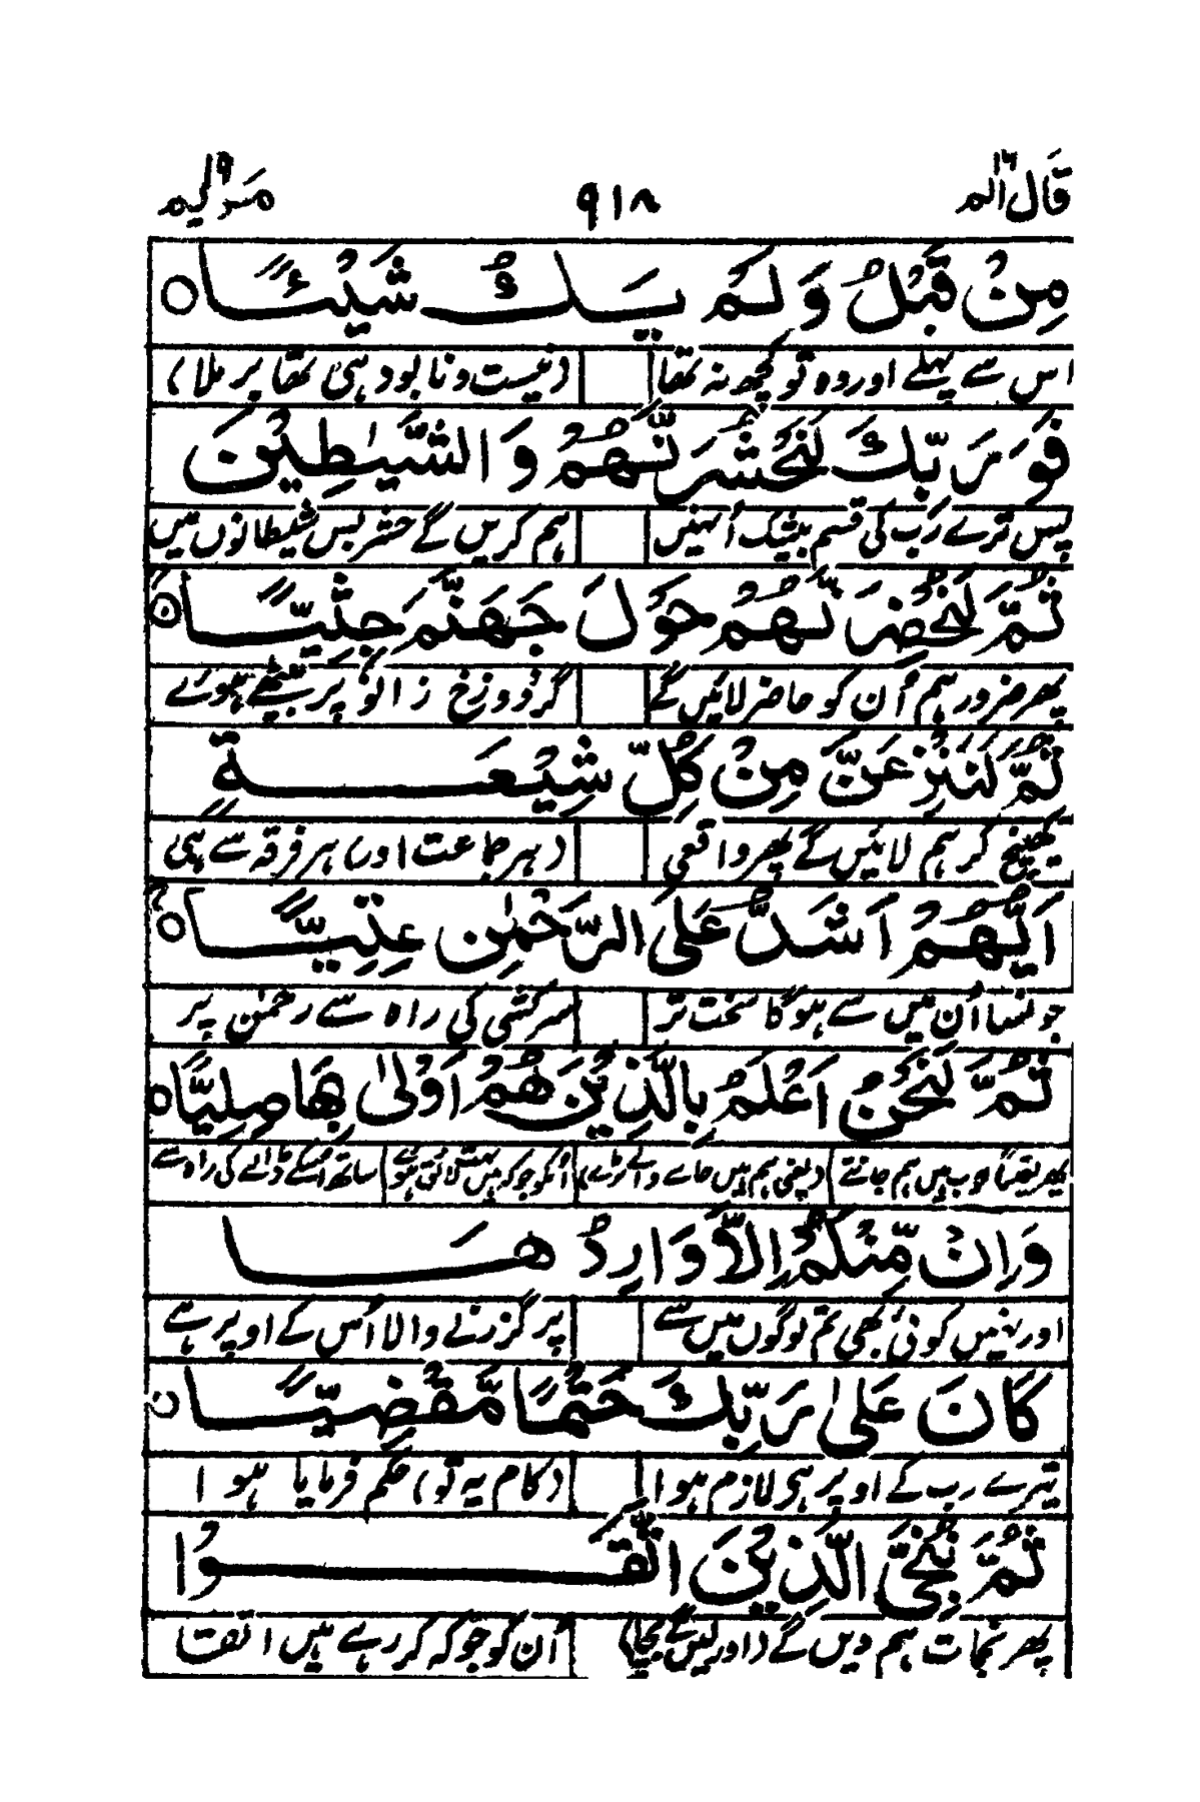 قال الم ١٦ ٩١٨ مریم ١٩
مِنْ قَبْلُ وَلَمْ يَكُ شَيْئًا ○
اس سے پہلے اور وہ تو کچھ نہ تھا (نیست و نابود ہی تھا پر ملا)
فَوَرَبِّكَ لَنَحْشُرَنَّهُمْ وَالشَّيٰطِيْنَ
پس ترے رب کی قسم بیشک اُنہیں ہم کریں گے حشر بس شیطانوں میں
ثُمَّ لَنُحْضِرَنَّهُمْ حَوْلَ جَهَنَّمَ جِثِيًّا ○
پھر ضرور ہم اُن کو حاضر لائیں گے گرد دوزخ زانو پر بیٹھے ہوئے
ثُمَّ لَنَنْزِعَنَّ مِنْ كُلِّ شِيْعَةٍ
کھینچ کر ہم لائیں گے پھر واقعی (ہر جماعت اور) ہر فرقہ سے ہی
اَيُّهُمْ اَشَدُّ عَلَى الرَّحْمٰنِ عِتِيًّا ○
جونسا اُن میں سے ہوگا سخت تر سرکشی کی راہ سے رحمٰن پر
ثُمَّ لَنَحْنُ اَعْلَمُ بِالَّذِيْنَ هُمْ اَوْلٰى بِهَا صِلِيًّا ○
پھر یقیناً خوب ہیں ہم جانتے (یعنی ہم ہیں جاننے والے بڑے) اُنکو جو کہ ہیں بہت لائق ہوئے ساتھ اُسکے ڈالے کی راہ سے
وَاِنْ مِّنْكُمْ اِلَّا وَارِدُهَا
اور نہیں کوئی بھی تم لوگوں میں سے پر گزرنے والا اُس کے اوپر ہے
كَانَ عَلٰى رَبِّكَ حَتْمًا مَّقْضِيًّا ○
تیرے رب کے اوپر ہی لازم ہوا (کام یہ تو) حکم فرمایا ہوا
ثُمَّ نُنَجِّي الَّذِيْنَ اتَّقَوْا
پھر نجات ہم دیں گے (اور لیں گے بچا) اُن کو جو کہ کر رہے ہیں اتقا